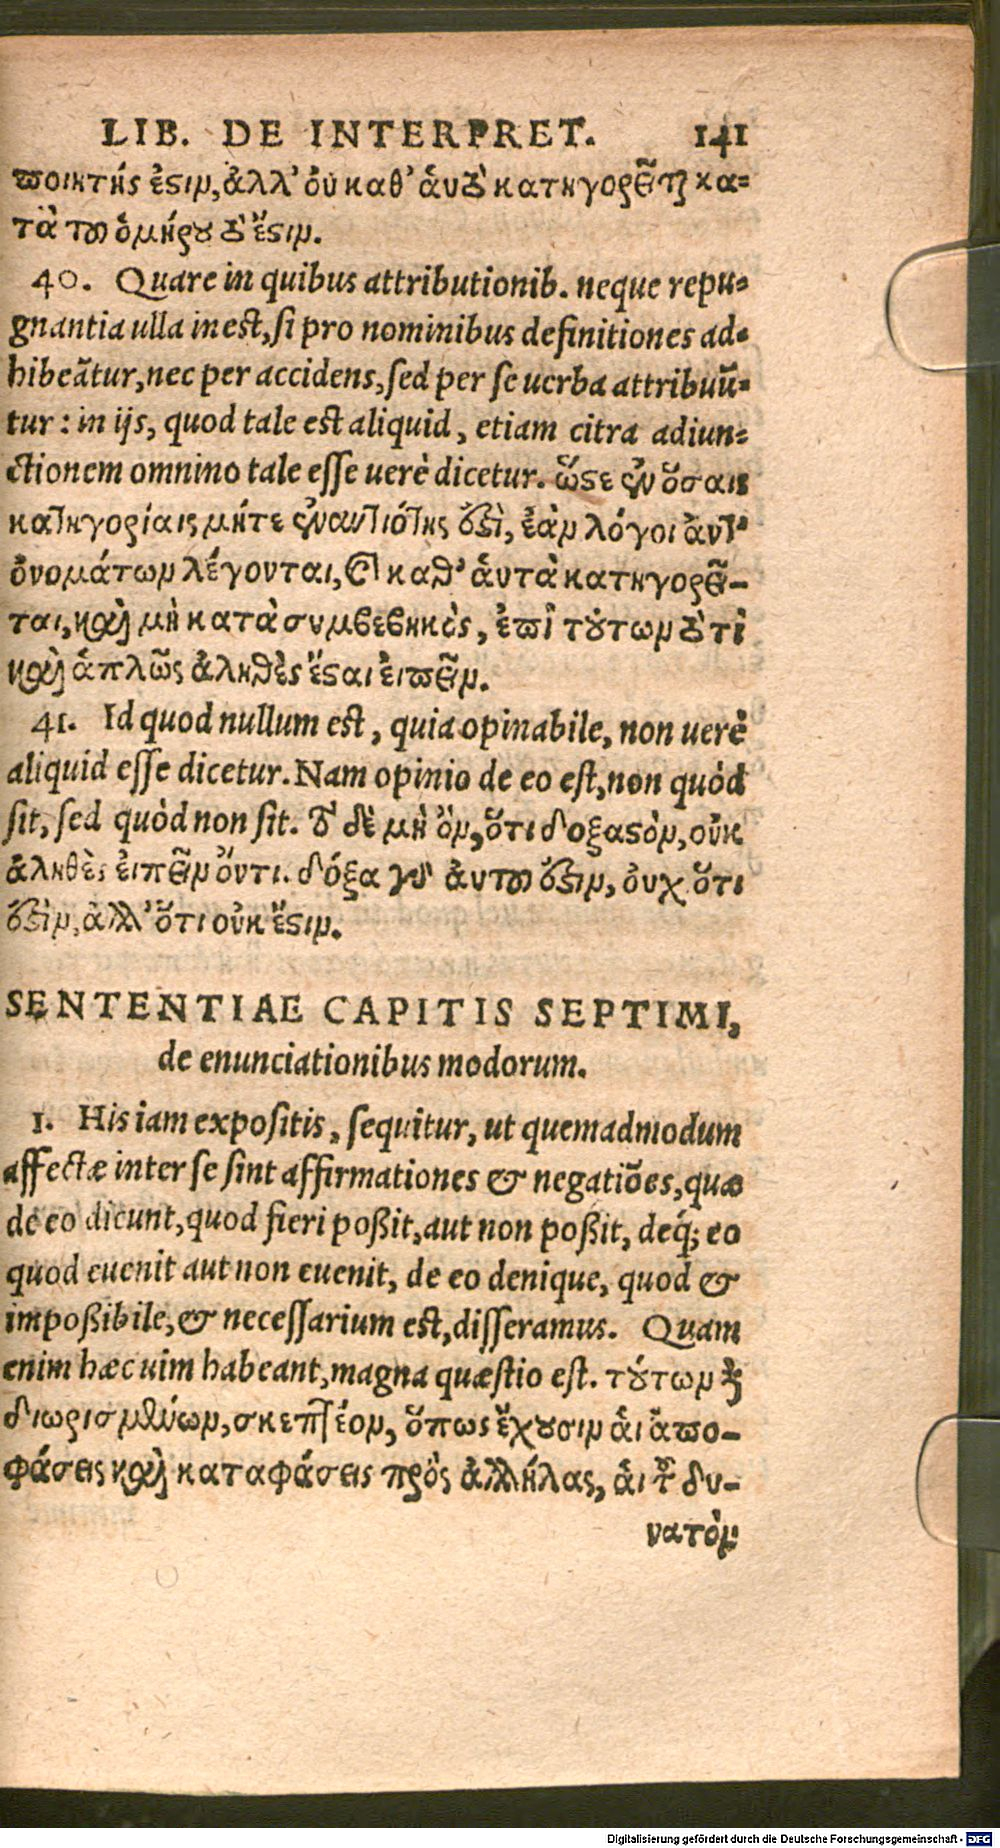 LIB. DE INTERPRET. 141
ποιητής ἐστιν, ἀλλ' οὐ καθ' αὑτὸ κατηγορεῖται κα=
τὰ τοῦ ὁμήρου τὸ ἔστιν.
40. Quare in quibus attributionib. neque repu=
gnantia ulla inest, si pro nominibus definitiones ad=
hibeãtur, nec per accidens, sed per se uerba attribuũ=
tur: in ijs, quod tale est aliquid, etiam citra adiun=
ctionem omnino tale esse uerè dicetur. ὥστε ἐν ὅσαις
κατηγορίαις μήτε ἐναντιότης ἐστὶ, ἐὰν λόγοι ἀντ'
ὀνομάτων λέγονται, καὶ καθ' ἁυτὰ κατηγορεῖ-
ται, καὶ μὴ κατὰ συμβεβηκὸς, ἐπὶ τούτων τὸ τὶ
καὶ ἁπλῶς ἀληθὲς ἔσται ἐιπεῖν.
41. Id quod nullum est, quia opinabile, non uerè
aliquid esse dicetur. Nam opinio de eo est, non quòd
sit, sed quòd non sit. τὸ δὲ μὴ ὂν, ὅτι δοξαστὸν, οὐκ
ἀληθὲς ἐιπεῖν ὄν τι. δόξα γὰρ ἀυτοῦ ἐστιν, ὀυχ ὅτι
ἐστὶν, ἀλλ' ὅτι οὐκ ἔστιν.
SENTENTIAE CAPITIS SEPTIMI,
de enunciationibus modorum.
1. His iam expositis, sequitur, ut quemadmodum
affectæ inter se sint affirmationes & negatiões, quæ
de eo dicunt, quod fieri poßit, aut non poßit, deq; eo
quod euenit aut non euenit, de eo denique, quod &
impoßibile, & necessarium est, disseramus. Quam
enim hæc uim habeant, magna quæstio est. τούτων δὲ
διωρισμένων, σκεπτέον, ὅπως ἔχουσιν ἁι ἀπο-
φάσεις καὶ καταφάσεις πρὸς ἀλλήλας, ἁι τοῦ δυ-
νατὸν